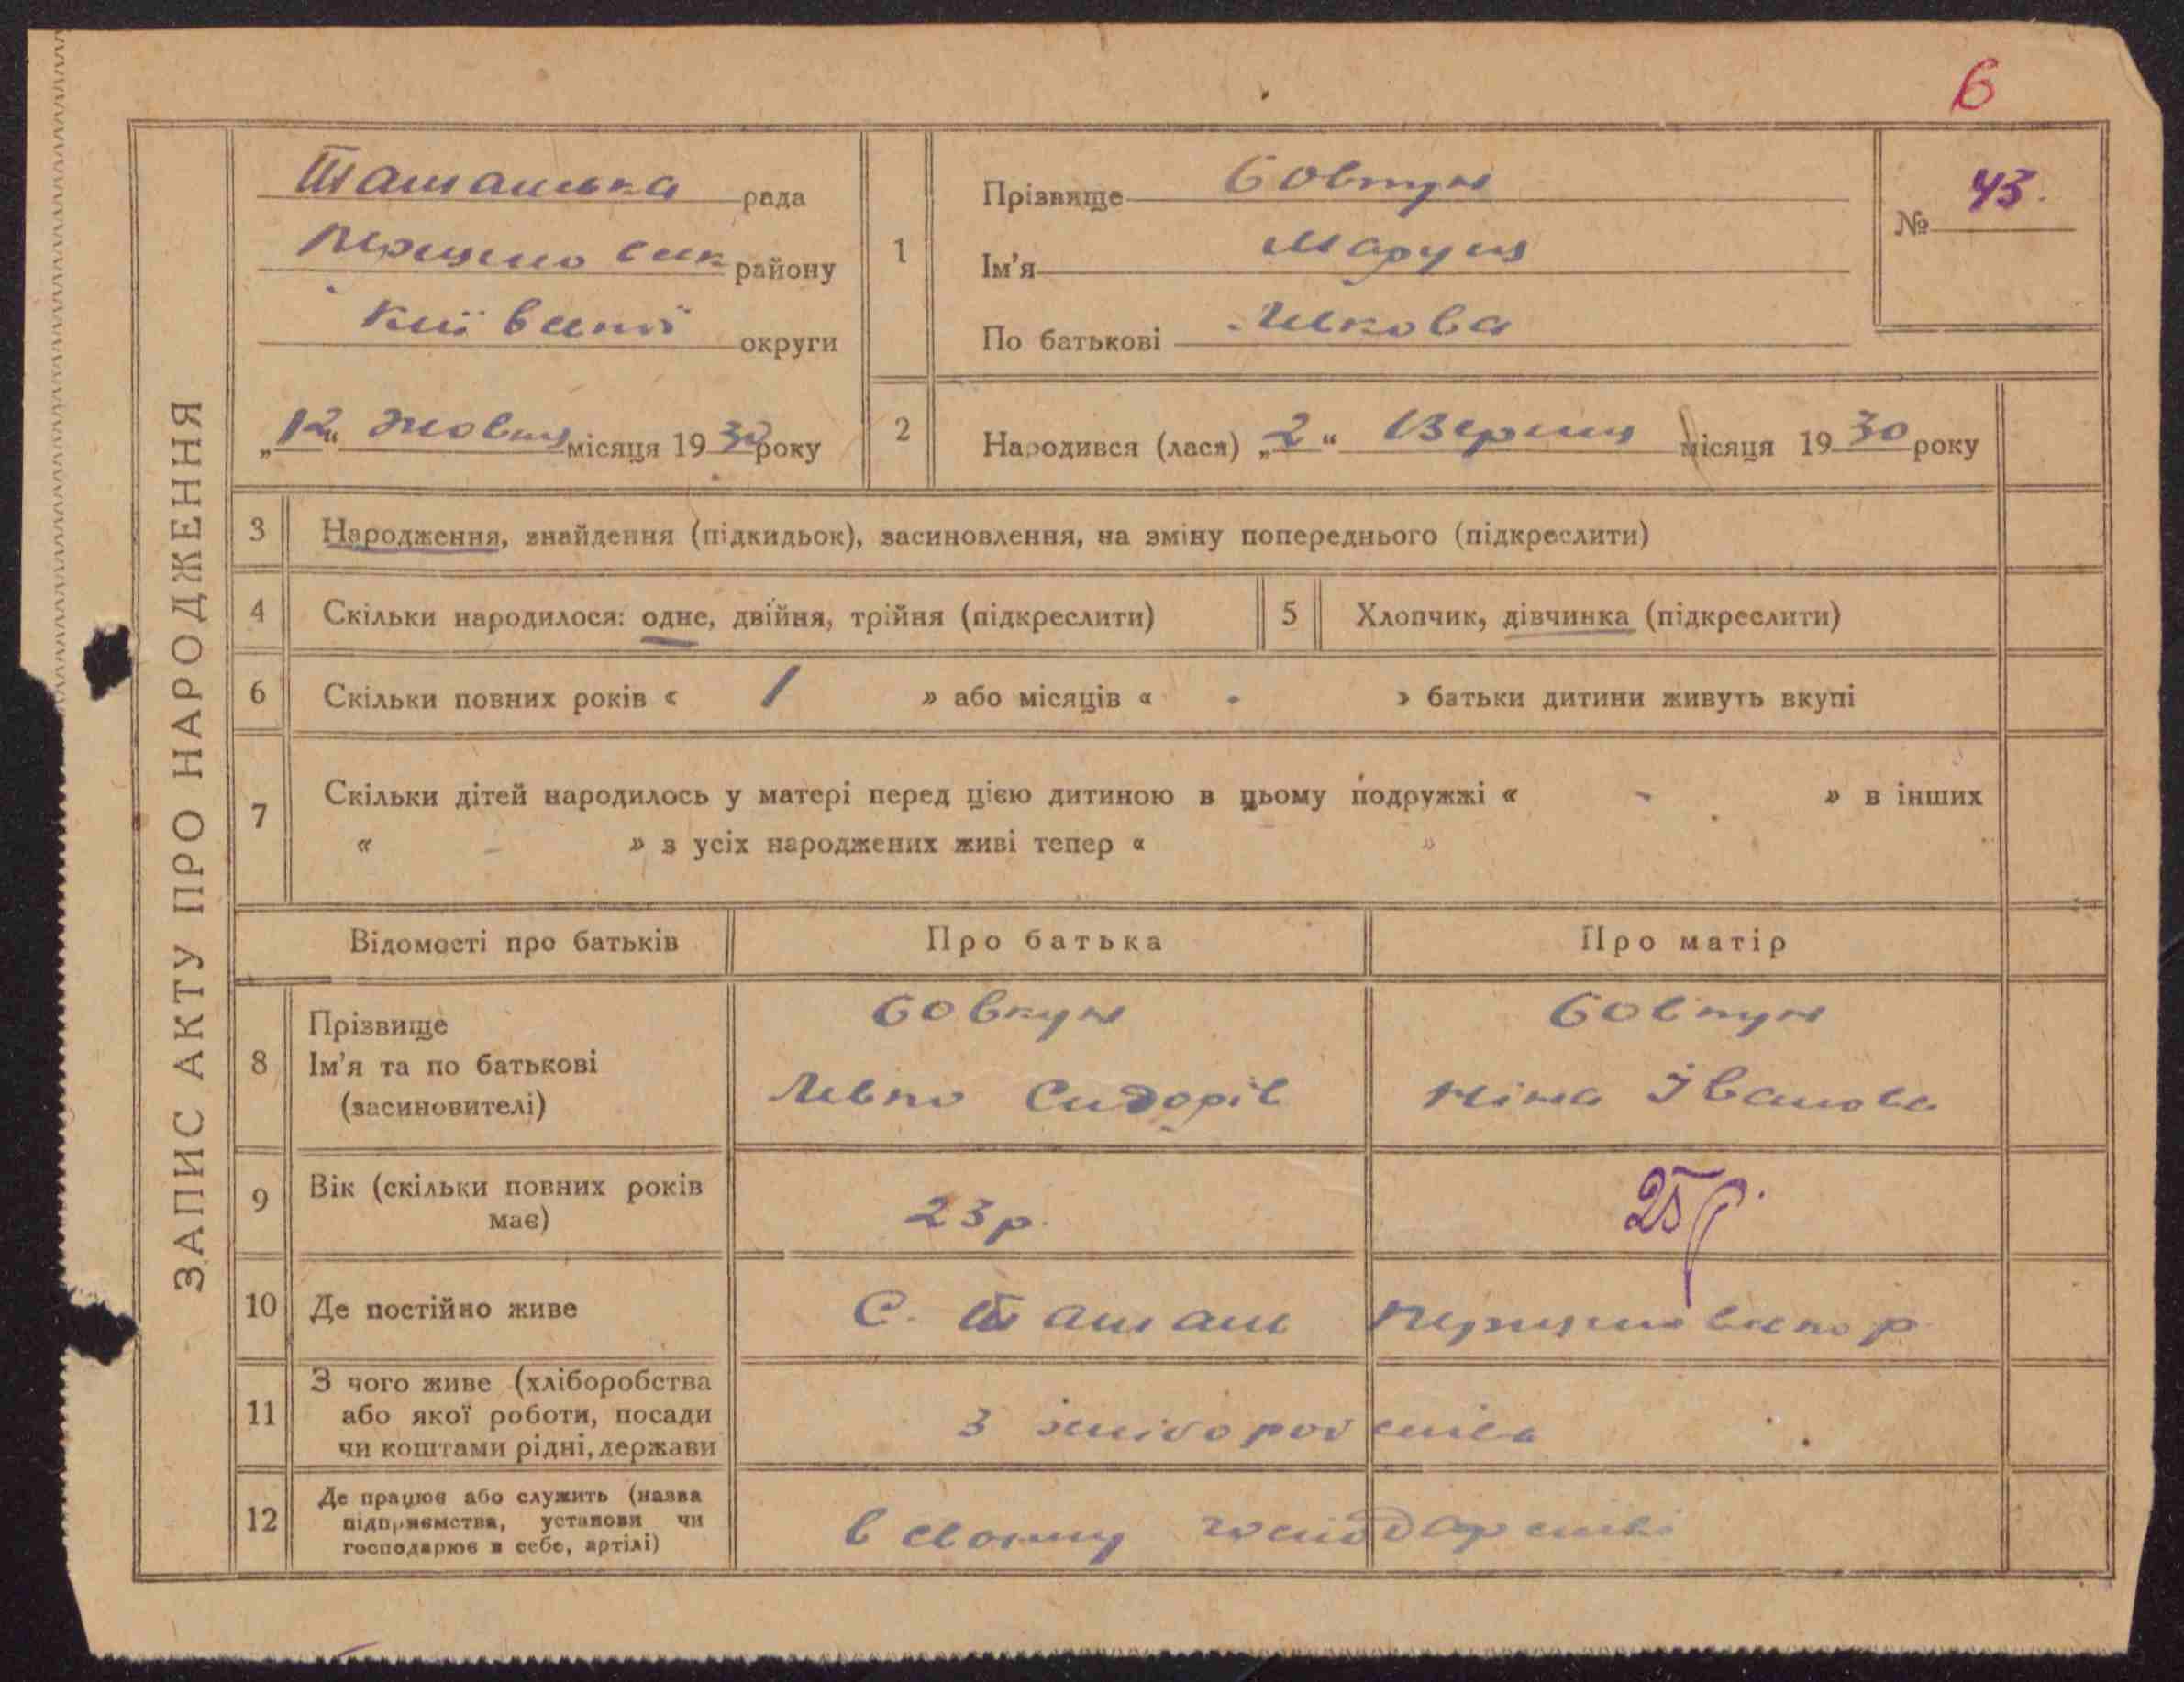 6
ЗАПИС АКТУ ПРО НАРОДЖЕННЯ
Ташанська рада
району
Київської округи
„12“ Жовтня місяця 1930 року
1
Прізвище Бовкун
Ім'я Маруся
По батькові Левкова
№ 43.
2
Народився (лася) „2“ Вересня місяця 1930 року
3 Народження, знайдення (підкидьок), засиновлення, на зміну попереднього (підкреслити)
4 Скільки народилося: одне, двійня, трійня (підкреслити)
5 Хлопчик, дівчинка (підкреслити)
6 Скільки повних років « 1 » або місяців « - » батьки дитини живуть вкупі
7 Скільки дітей народилось у матері перед цією дитиною в цьому подружжі « - » в інших
« - » з усіх народжених живі тепер « »
Відомості про батьків Про батька Про матір
8 Прізвище Бовкун Бовкун
Ім'я та по батькові Левко Сидорів Ніна Іванова
(засиновителі)
9 Вік (скільки повних років
має) 23 р. 25 р.
10 Де постійно живе С. Ташань р.
11 З чого живе (хліборобства
або якої роботи, посади
чи коштами рідні, держави
З хліборобства
12 Де працює або служить (назва
підприємства, установи чи
господарює в себе, артілі)
в своєму господарстві